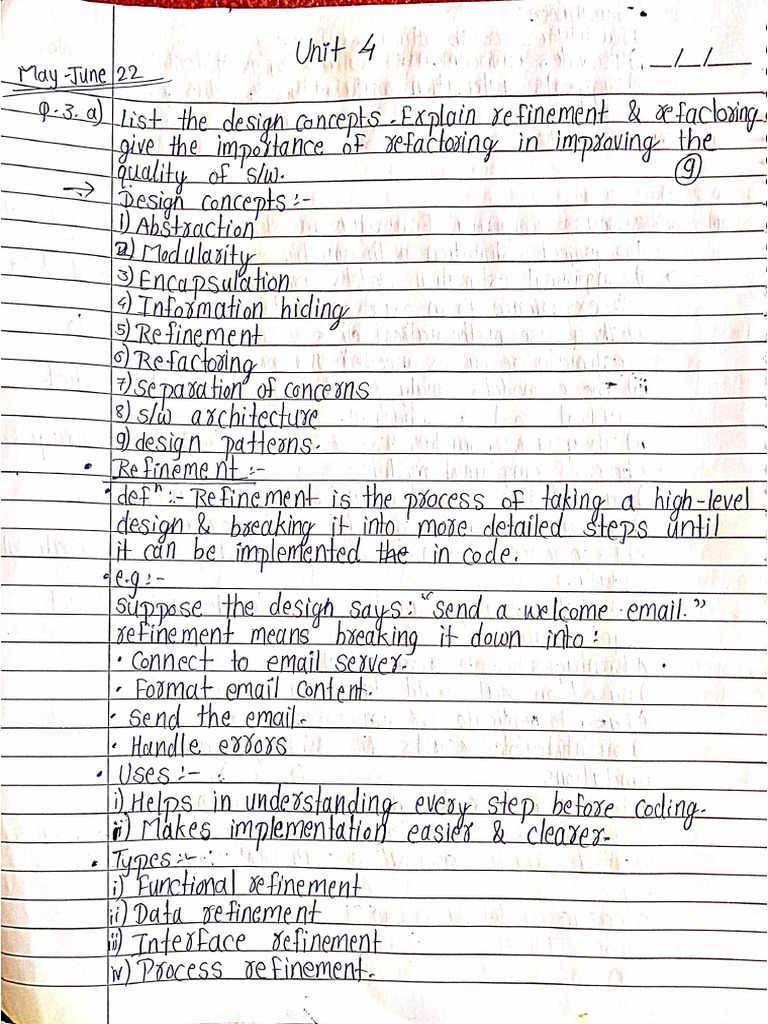 Unit 4
_/_/_
May-June 22
Q.3. a) List the design concepts. Explain refinement & refactoring
give the importance of refactoring in improving the
quality of s/w. (9)
→ Design concepts :-
1) Abstraction
2) Modularity
3) Encapsulation
4) Information hiding
5) Refinement
6) Refactoring
7) separation of concerns
8) s/w architecture
9) design patterns.
• Refinement :-
• defⁿ :- Refinement is the process of taking a high-level
design & breaking it into more detailed steps until
it can be implemented the in code.
• e.g :-
suppose the design says: "send a welcome email."
refinement means breaking it down into :
• Connect to email server.
• Format email content.
• Send the email.
• Handle errors
• Uses :-
i) Helps in understanding every step before coding.
ii) Makes implementation easier & clearer.
• Types :-
i) Functional refinement
ii) Data refinement
iii) Interface refinement
iv) Process refinement.